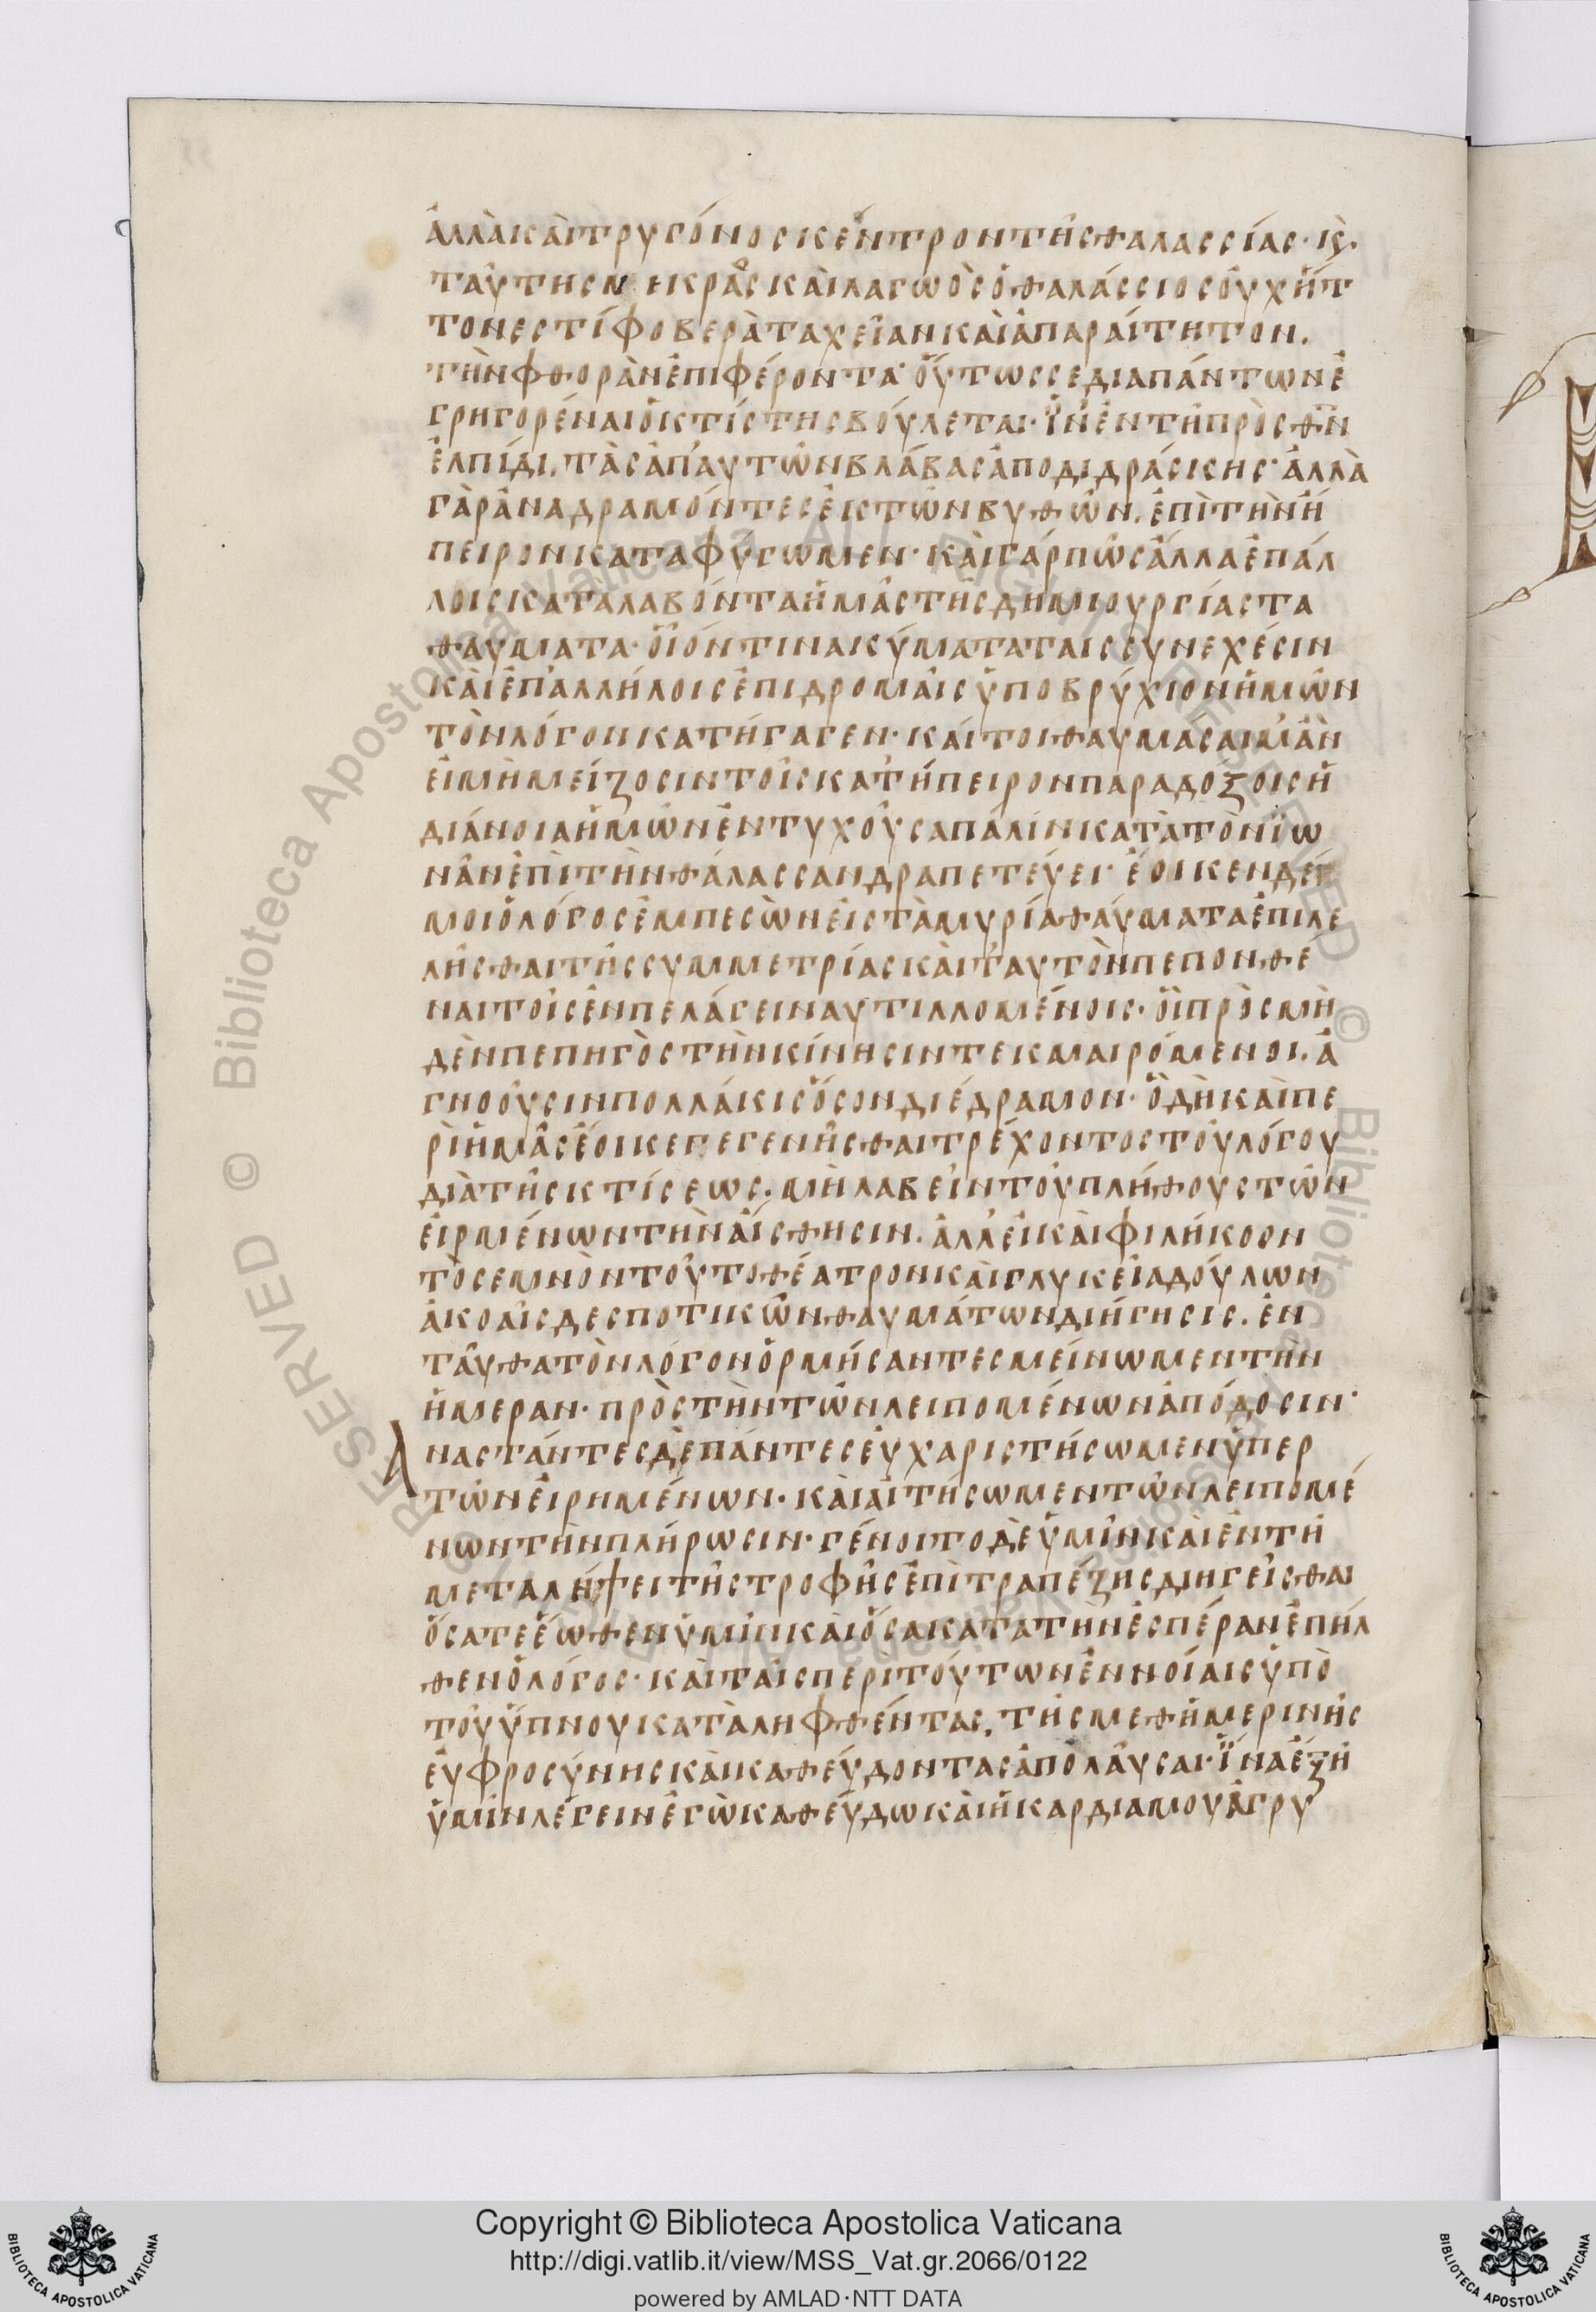 ἀλλὰ καὶ τρυγόνος κέντρον τῆς θαλασσίας· κ(αὶ)
ταύτης νεκρᾶς καὶ λαγωὸς ὁ θαλάσσιος οὐχ ἧτ
τον ἐστί φοβερὰ ταχεῖαν καὶ ἀπαραίτητον.
τὴν φθορὰν ἐπιφέροντα· οὕτως σε διαπάντων ἐ
γρηγορέναι ὁ κτίστης βούλεται· ἵν' ἐν τῇ πρὸς θν
ἐλπίδι. τὰς ἀπ' αὐτῶν βλάβας ἀποδιδράσκῃς· ἀλλὰ
γὰρ ἀναδραμόντες ἐκ τῶν βυθῶν. ἐπὶ τὴν ἤ
πειρον καταφύγωμεν· καὶ γάρ πως ἄλλα ἐπ' ἄλ
λοις καταλαβόντα ἡμᾶς τῆς δημιουργίας τα
θαυματα· οἷόν τινα κύματα ταις συνεχέσιν
καὶ ἐπ' ἀλλήλοις ἐπιδρομαῖς ὑποβρύχιον ἡμῶν
τὸν λόγον κατήγαγεν· καίτοι θαυμάσαιμ' ἂν
εἰ μὴ μείζοσιν τοῖς κατ' ἤπειρον παραδόξοις ἡ
διάνοια ἡμῶν ἐντυχοῦσα πάλιν κατὰ τὸν ἰω
νᾶν ἐπὶ τὴν θάλασσαν δραπετεύει· ἔοικεν δέ
μοι ὁ λόγος ἐμπεσὼν εἰς τὰ μυρία θαύματα ἐπιλε
λῆσθαι τῆς συμμετρίας καὶ τ' αυτὸν πεπονθέ
ναι τοῖς ἐν πελάγει ναυτιλλομένοις· οἳ πρὸς μη
δὲν πεπηγὸς τὴν κίνησιν τεκμαιρόμενοι. ἀ
γνοοῦσιν πολλάκις ὅσον διέδραμον· ὃ δὴ καὶ πε
ρὶ ἡμᾶς ἔοικε γεγενῆσθαι τρέχοντος τοῦ λόγου
διὰ τῆς κτίσεως. μὴ λαβεῖν τοῦ πλήθους τῶν
εἰρμένων τὴν αἴσθησιν. ἀλλ' εἰ καὶ φιλήκοον
τὸ σεμνὸν τοῦτο θέατρον καὶ γλυκεῖα δούλων
ἀκοαῖς δεσποτικῶν θαυμάτων διήγησις. ἐν
ταῦθα τὸν λόγον ὁρμήσαντες μείνωμεν τὴν
ἡμεραν· πρὸς τὴν τῶν λειπομένων ἀπόδοσιν·
Αναστάντες δὲ πάντες εὐχαριστήσωμεν ὑπερ
τῶν εἰρημένων· καὶ αἰτήσωμεν τῶν λειπομέ
νων τὴν πλήρωσιν· γένοιτο δὲ ὑμῖν καὶ ἐν τῇ
μεταλήψει τῆς τροφῆς ἐπὶ τραπέζης διηγεῖσθαι
ὅσα τε ἕωθεν ὑμῖν καὶ ὅσα κατα τὴν ἑσπέραν ἐπῆλ
θεν ὁ λόγος· καὶ ταῖς περι τούτων ἐννοίαις ὑπὸ
τοῦ ὕπνου καταληφθέντας. τῆς μεθημερινῆς
εὐφροσύνης καὶ καθεύδοντας ἀπολαῦσαι· ἵνα ἐξῇ
ὑμῖν λέγειν ἐγὼ καθεύδω καὶ ἡ καρδια μου ἀγρυ
Copyright © Biblioteca Apostolica Vaticana
http://digi.vatlib.it/view/MSS_Vat.gr.2066/0122
powered by AMLAD·NTT DATA